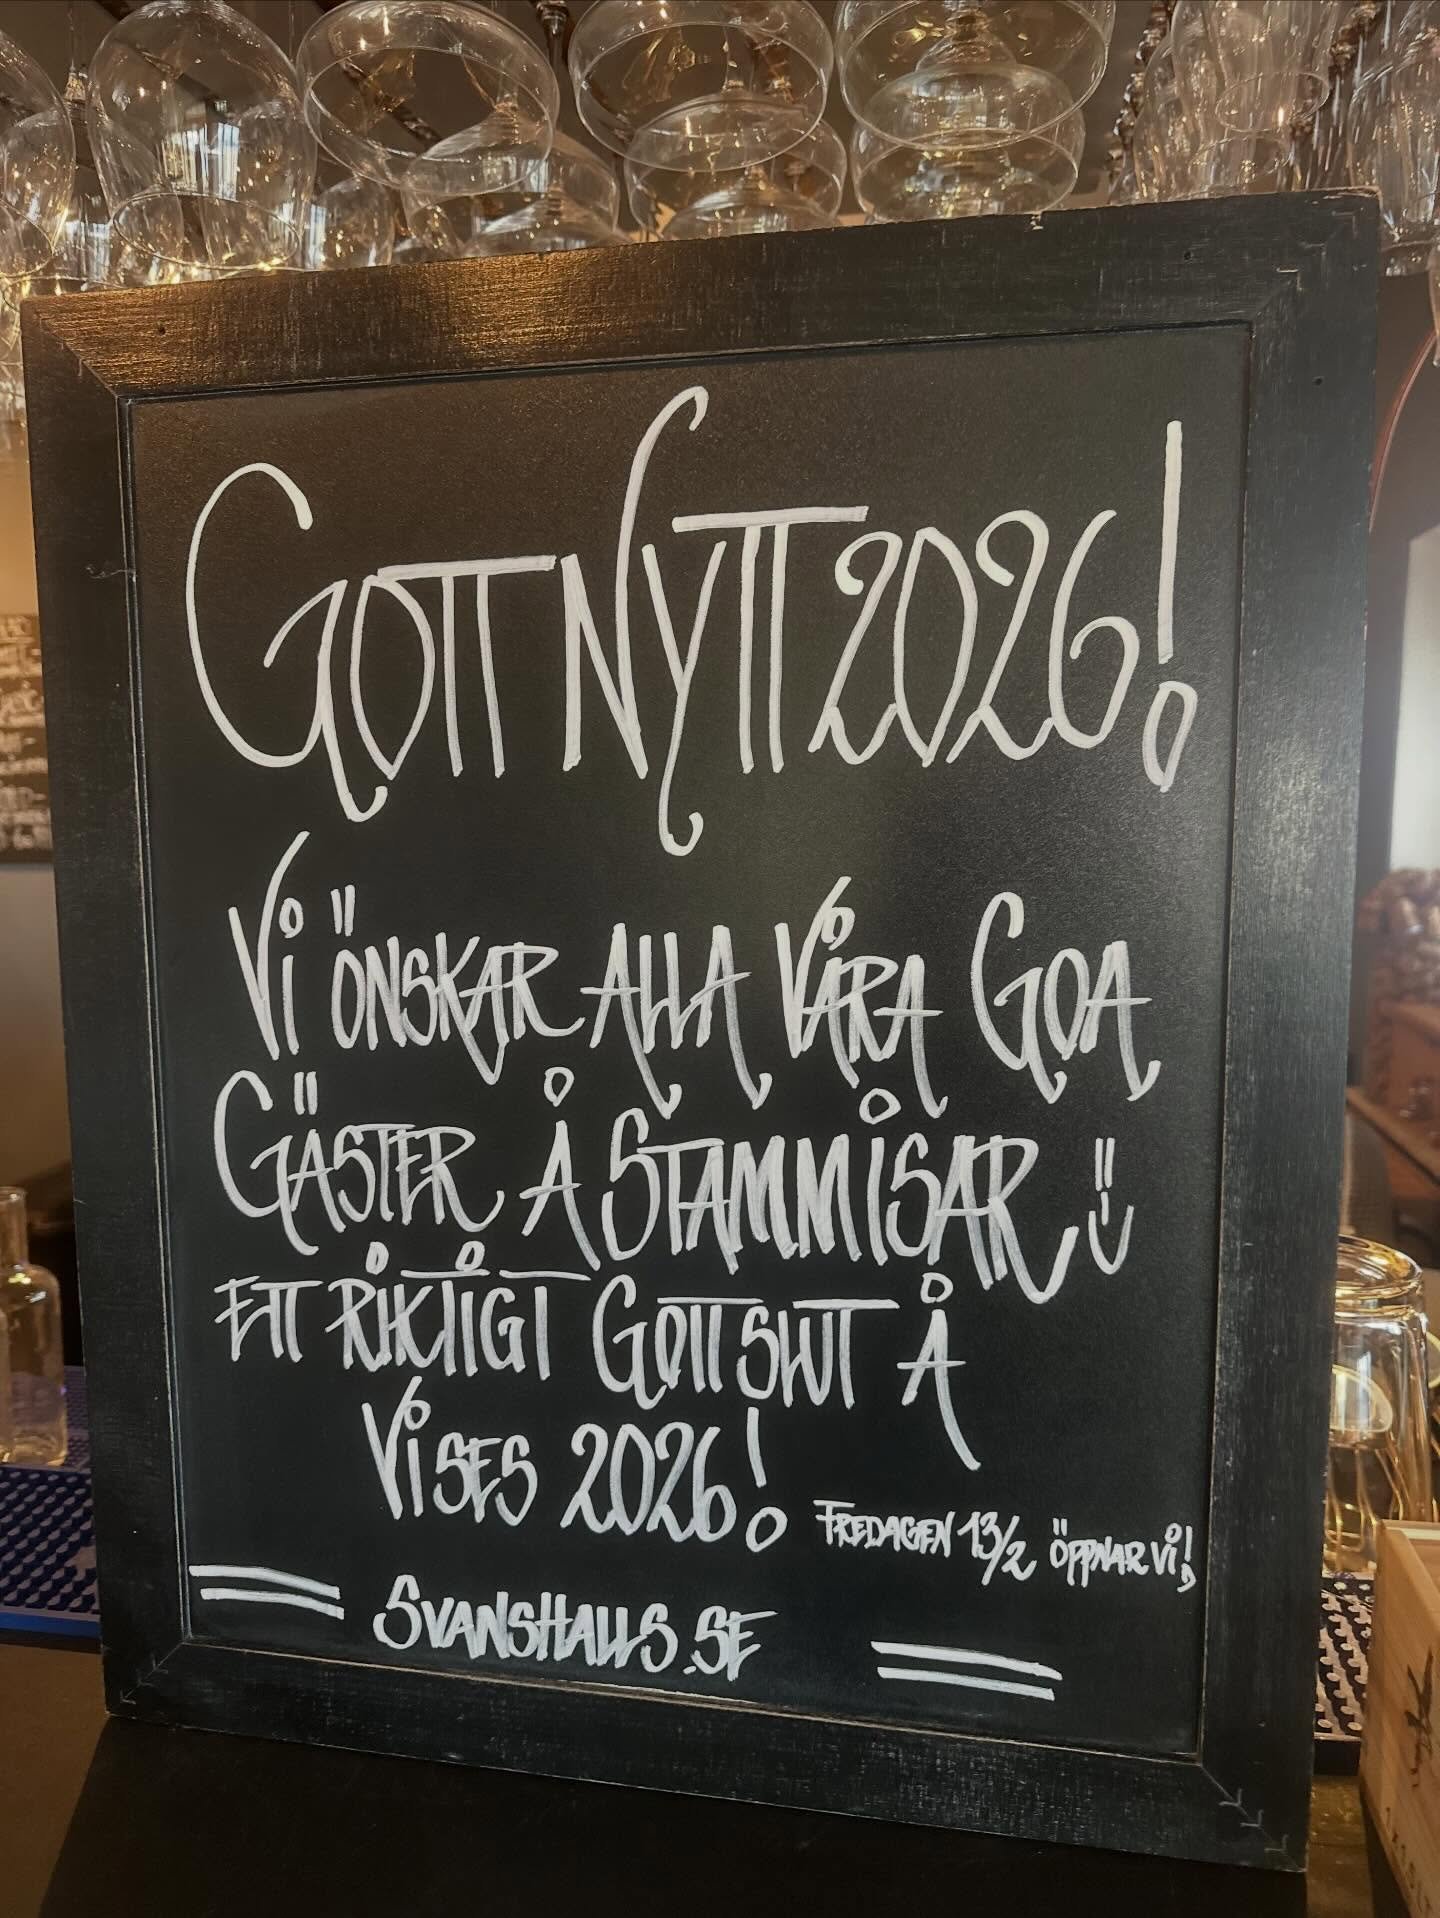 GOTT NYTT 2026!
VI ÖNSKAR ALLA VÅRA GOA
GÄSTER Å STAMMISAR ü
ETT RIKTIGT GOTT SLUT Å
VI SES 2026!
FREDAGEN 13/2 ÖPPNAR VI!
SVANSHALLS.SE